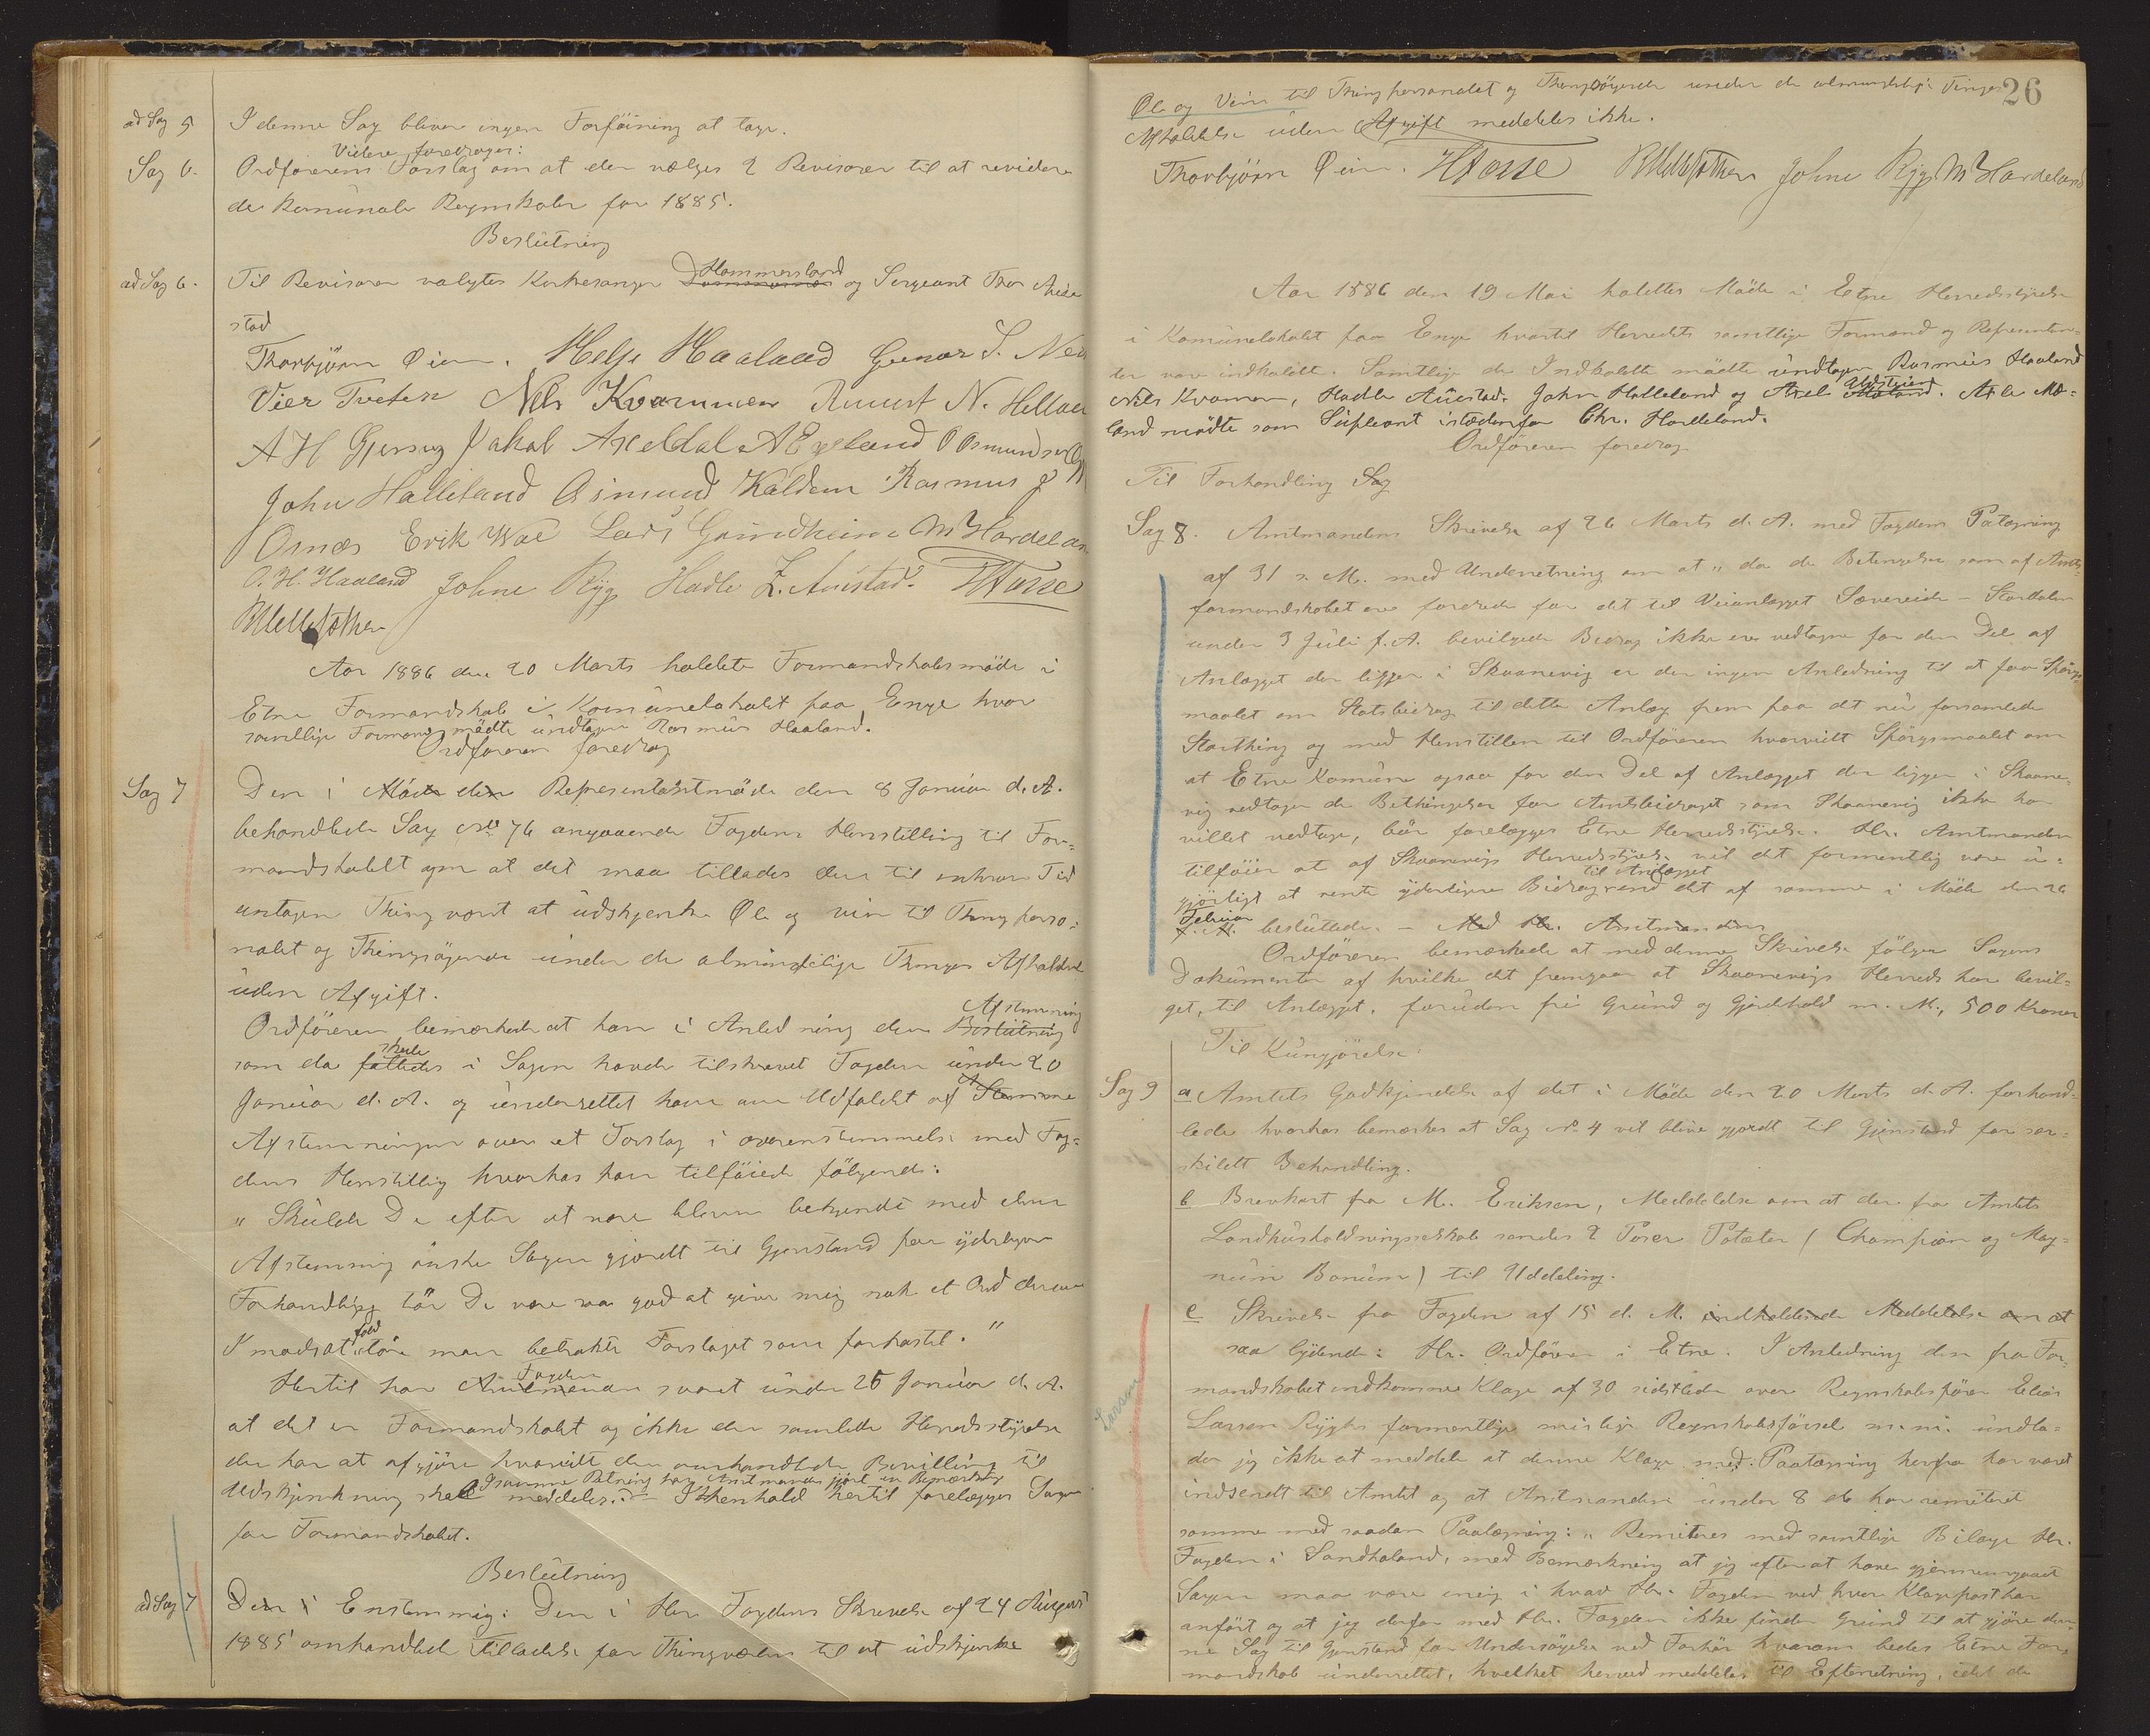 ad Sag 5 I denne Sag bliver ingen Forføining at tage.
Videre foredroges:
Sag 6. Ordførerens Forslag om at der vælges 2 Revisorer til at revidere
de komünale Regnskaber for 1885.
Beslütning
ad Sag 6. Til Revisorer valgtes Kirkesanger Hammersland og Sergeant Thor
stad
Thorbjörn Øien. Helje Haaland Gunar S.
Vier Tveten Nels Kvammen N.
A H Gjersvig Jakob Axeldal A Egeland O Osmundsen
John Halleland Asmund Kaldem Rasmus J
Osnes Erik Lars Grindheim M Y Hardeland
O. H. Haaland Johne Rygg Hadle L. Aüistad. H Fosse

Aar 1886 den 20 Marts holdtes Formandskabsmöde i
Etne Formandskab i Komünelokalet paa Enge hvor
samtlige Formænd mödte ündtagen Rasmüs Haaland.
Ordföreren foredrog
Sag 7 Den i Möde den Representantmöde den 8 Janüar d. A.
behandlede Sag No 76 angaaende Fogdens Henstilling til For-
mandskabet om at det maa tillades den til enhver Tid
antagen Thingvært at üdskjenke Øl og vin til Thingperso-
nalet og Thingsögende ünder de almindelige Thinges Afholdelse
üden Afgift.
Ordföreren bemærkede at han i Anledning den Afstemning Beslütning
som da skede fattedes i Sagen havde tilskrevet Fogden ünder 20
Janüar d. A. og ünderrettet ham om Udfaldet af
Afstemningen over et Forslag i overenstemmelse med Fog-
dens Henstilling hvorhos han tilföiede fölgende:
„Skülde De efter at være bleven bekjendt med den
Afstemning önske Sagen gjordt til Gjenstand for yderligere
Forhandling bör De være saa god at give mig nok et Ord derom
I modsat fald töre man betrakte Forslaget som forkastet."
Hertil har Fogden Amtmanden svaret ünder 25 Janüar d. A.
at det er Formandskabet og ikke den samlede Herredsstyrelse
der har at afgjöre hvorvidt den omhandlede Bevilling til
I samme Retning har Amtmanden gjort en Bemærkning
Udskjenkning skal meddeles. I Henhold hertil forelægges Sagen
for Formandskabet.
Beslütning
ad Sag 7 Den i Enstemmig: Den i Her Fogdens Skrivelse af 24 Aügust
1885 omhandlede Tilladelse for Thingværten til at üdskjenke
26
Øl og Vin til Thingpersonalet og Thingsögende ünder de almindelige Tinges
Afholdelse üden Afgift meddeles ikke.
Thorbjörn Øien. H Fosse Johne Rygg M Y Hardeland
Aar 1886 den 19 Mai holdtes Möde i Etne Herredsstyrelse
i Komünelokalet paa Enge hvortil Herredets samtlige Formænd og Representan-
ter vare indkaldte. Samtlige de Indkaldte mödte ündtagen Rasmüs Haaland
Nils Kvamen, Hadle Aüestad, John Halleland og Axel. Atle Mø-
land mödte som Süpleant istedenfor Chr. Hardeland.
Ordföreren foredrog
Til Forhandling Sag
Sag 8. Amtmandens Skrivelse af 26 Marts d. A. med Fogdens Påtegning
af 31 s. M. med Underretning om at „da de Betingelser som af Amts-
formandskabet ere fordrede for det til Veianlægget Sævereide - Stordalen
under 3 Jüli f. A. bevilgede Bidrag ikke ere vedtagne for den Del af
Anlægget der ligger i Skaanevig er der ingen Anledning til at faa Spörgs-
maalet om Statsbidrag til dette Anlæg frem paa det nü forsamlede
Storthing og med Henstillen til Ordföreren hvorvidt Spörgsmaalet om
at Etne Komüne ogsaa for den Del af Anlægget der ligger i Skaane-
vig vedtager de Bethingelser for Amtsbidraget som Skaanevig ikke har
villet vedtage, bör forelægges Etne Herredsstyrelse. Hr. Amtmanden
tilföier at af Skaanevigs Herredsstyrelse vil det formentlig være ü-
gjörligt at vente yderligere Bidrag til Anlægget end det af samme i Möde den 26
Febrüar f. M. beslüttede. - Med Hr. Amtmandens
Ordföreren bemærkede at med denne Skrivelse fölger Sagens
Dokümenter af hvilke det fremgaar at Skaanevigs Herred har bevil-
get, til Anlægget, forüden fri Gründ og Gjerdehold m. M., 500 Kroner
Til Küngjörelse:
Sag 9 a Amtets Godkjendelse af det i Möde den 20 Marts d. A. forhand-
lede hvorhos bemærkes at Sag No 4 vil blive gjordt til Gjenstand for sær-
skildt Behandling.
b Brevkort fra M. Eriksen, Meddelelse om at der fra Amtets
Landhüsholdningsselskab sendes 2 Poser Potæter (Champion og Mag-
nüm Bonüm) til Uddeling.
c Skrivelse fra Fogden af 15 d. M. indholdende Meddelelse om at
saa lydende: Hr. Ordförer i Etne. I Anledning den fra For-
mandskabet indkomne Klage af 30 sidstlede over Regnskabsförer Elias
Larson
Larsen Rygghs formentlige mislige Regnskabsförsel m. m. ündla-
der jeg ikke at meddele at denne Klage med Paategning herfra har været
indsendt til Amtet og at Amtmanden ünder 8 ds har remiteret
samme med saadan Paategning: „Remiteres med samtlige Bilage Hr.
Fogden i Söndhorland, med Bemærkning at jeg efter at have gjennemgaaet
Sagen maa være enig i hvad Hr. Fogden ved hver Klagepost har
anfört og at jeg derfor med Hr. Fogden ikke finder Gründ til at gjöre den-
ne Sag til Gjenstand for Undersögelse ved Forhör hvorom bedes Etne For-
mandskab ünderrettet, hvilket herved meddeles til Efterretning, idet de